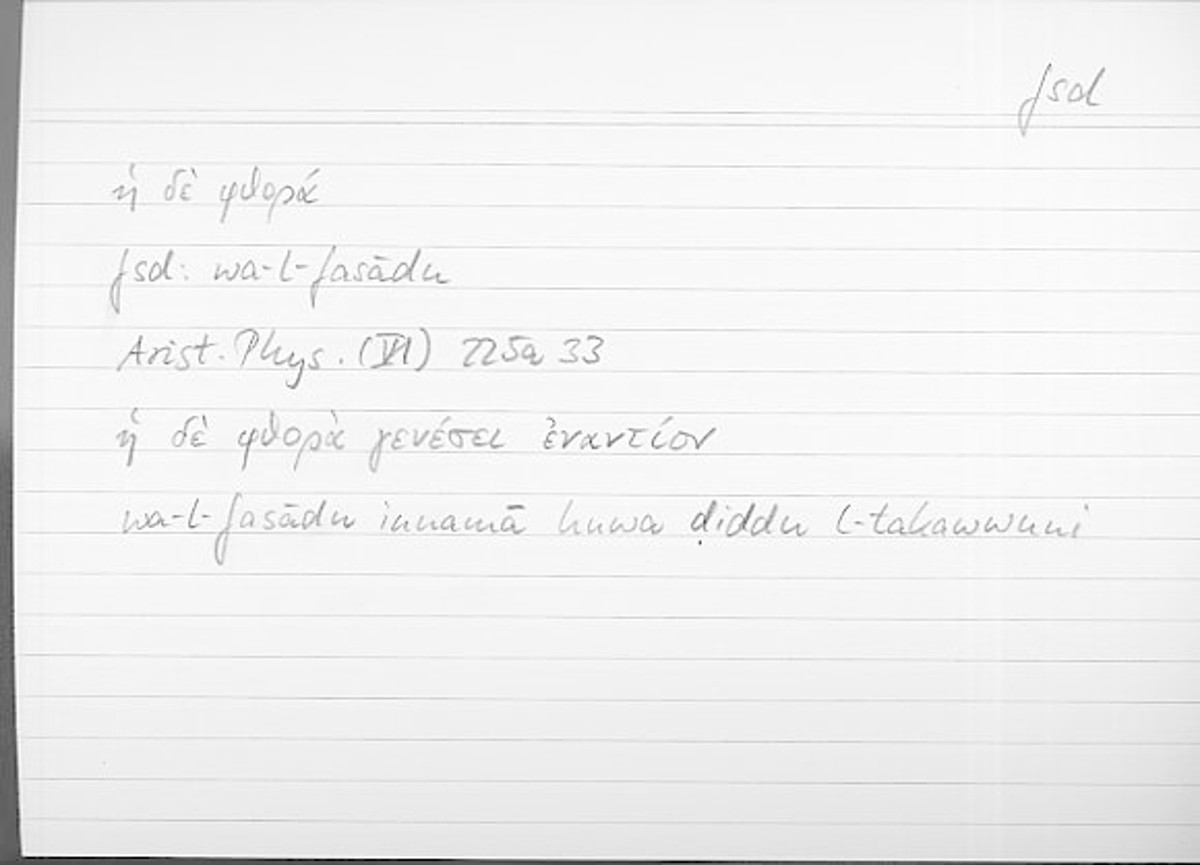 fsd
ἡ δὲ φθορά
fsd: wa-l-fasādu
Arist. Phys. (VI) 225a 33
ἡ δὲ φθορὰ γενέσει ἐναντίον
wa-l-fasādu innamā huwa ḍiddu l-takawwuni